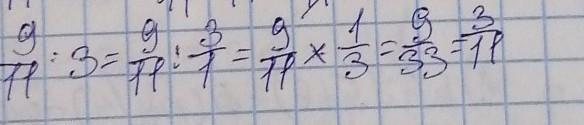 9/11 : 3 = 9/11 : 3/1 = 9/11 × 1/3 = 9/33 = 3/11